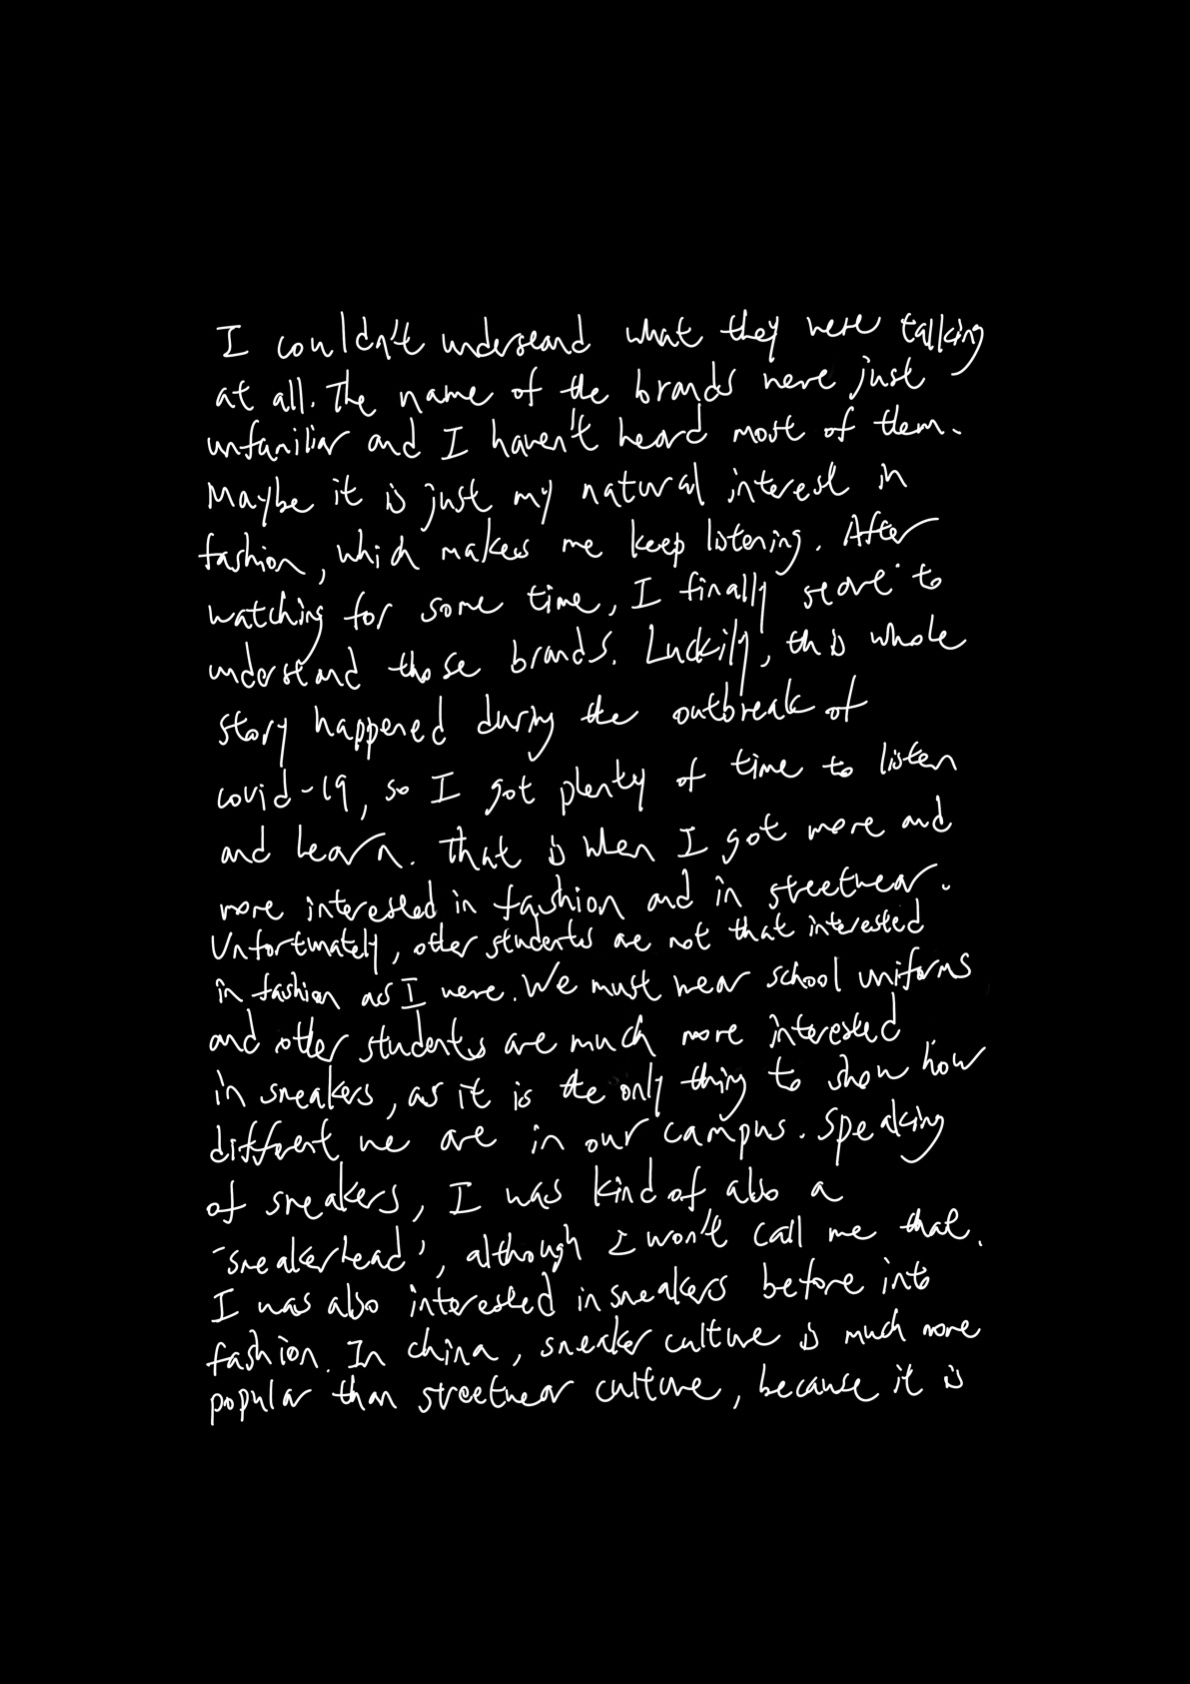 I couldn't understand what they were talking
at all. The name of the brands were just
unfamiliar and I haven't heard most of them.
Maybe it is just my natural interest in
fashion, which makes me keep listening. After
watching for some time, I finally start to
understand those brands. Luckily, this whole
story happened during the outbreak of
covid-19, so I got plenty of time to listen
and learn. That is when I got more and
more interested in fashion and in streetwear.
Unfortunately, other students are not that interested
in fashion as I were. We must wear school uniforms
and other students are much more interested
in sneakers, as it is the only thing to show how
different we are in our campus. Speaking
of sneakers, I was kind of also a
"sneakerhead", although I won't call me that.
I was also interested in sneakers before into
fashion. In china, sneaker culture is much more
popular than streetwear culture, because it is